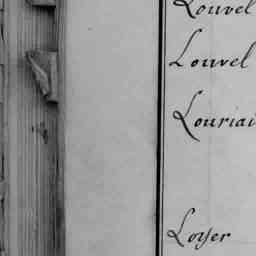 Louvel
Louvel
Louriai
Loyer